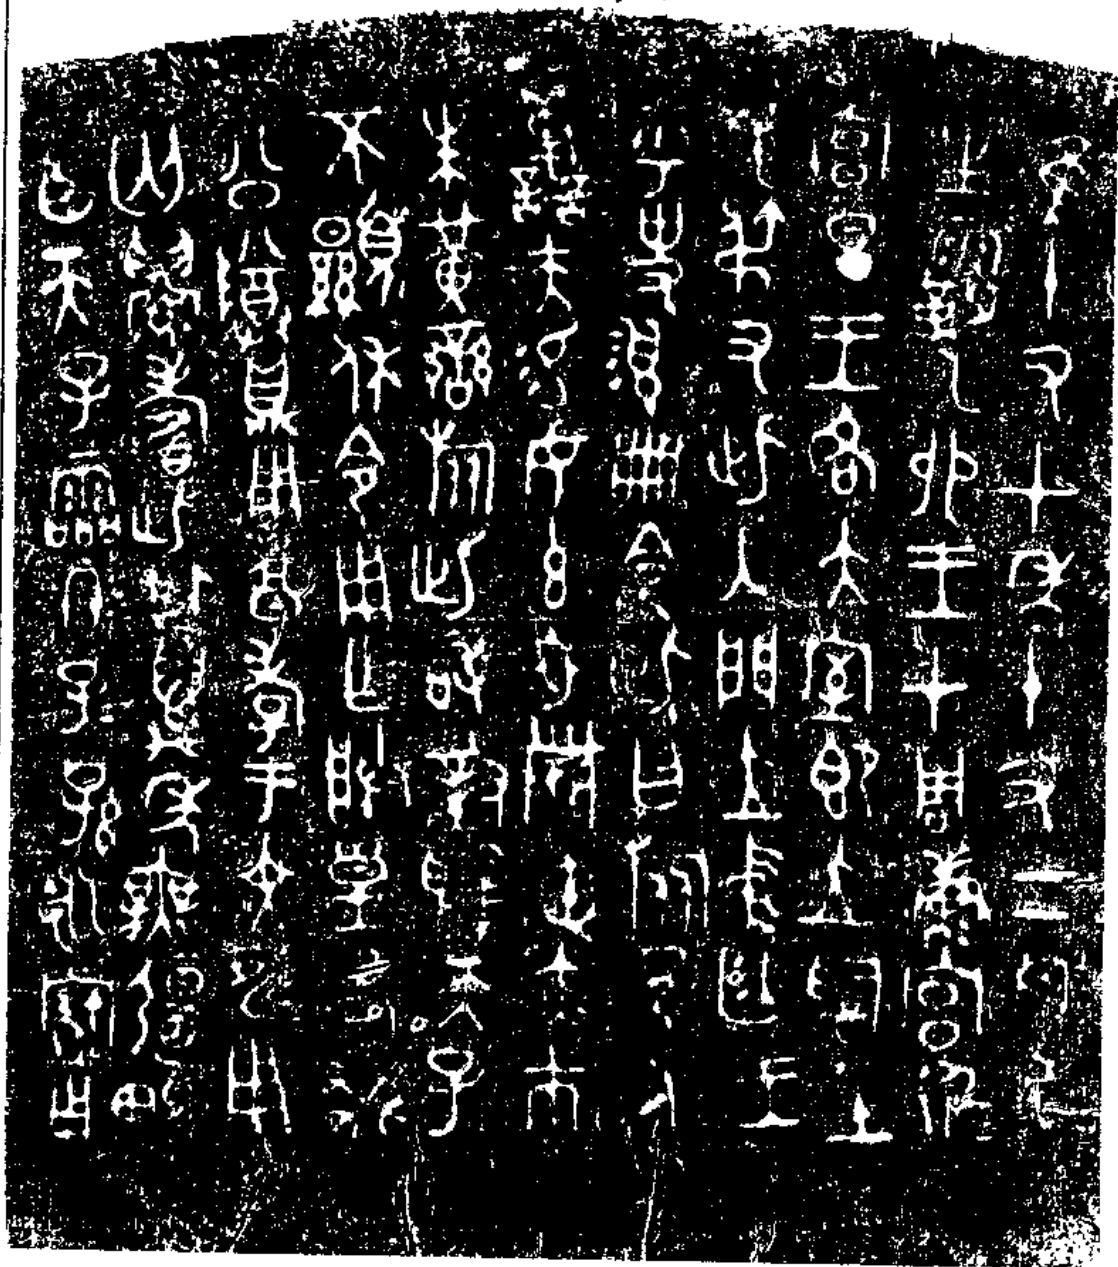 隹十又七年十又二月既
生霸乙卯王才周康宮徲
宮旦王各大室即立𤔲土
毛弔又此入門立中廷王
乎史翏冊令此曰旅邑人
善夫易女玄衣黹屯赤巿
朱黃䜌旂此敢對揚天子
不顯休令用乍朕皇考癸
公尊鼎用亯孝于文申用
匄眉壽此其萬年無彊畯
臣天子霝冬子子孫永寶用